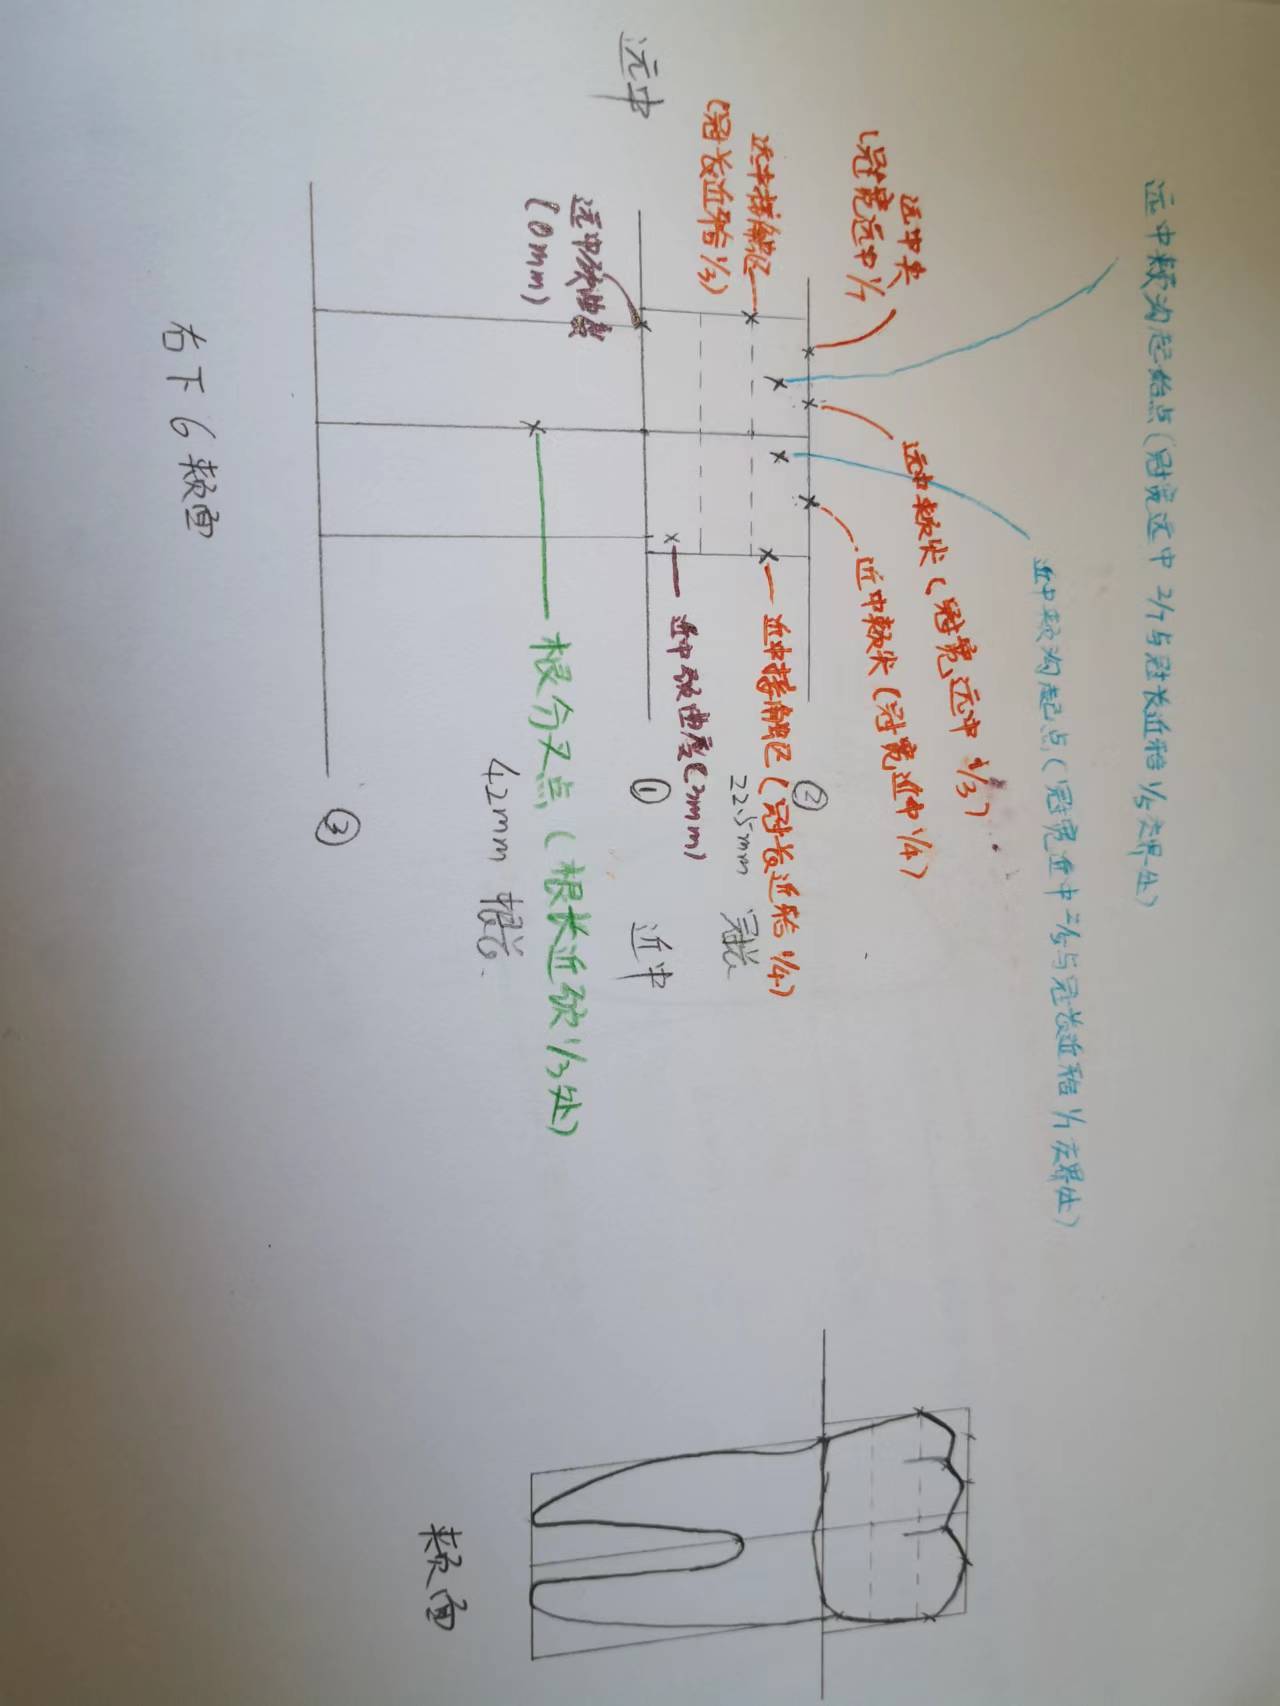 远中颊沟起始点(冠宽远中2/7与冠长近𬌗1/5交界处)
近中颊沟起点(冠宽近中2/5与冠长近𬌗1/交界处)
远中尖
(冠宽远中1/7
远中颊尖(冠宽远中1/3)
近中颊尖(冠宽近中1/4)
远中接触区
(冠长近𬌗1/3)
近中接触区(冠长近𬌗1/4)
②
22.5mm 冠长
远中
近中颈曲度(2mm)
①
近中
远中颈曲度
(0mm)
根分叉点(根长近颈1/3处)
42mm 根长
③
右下6颊面
颊面